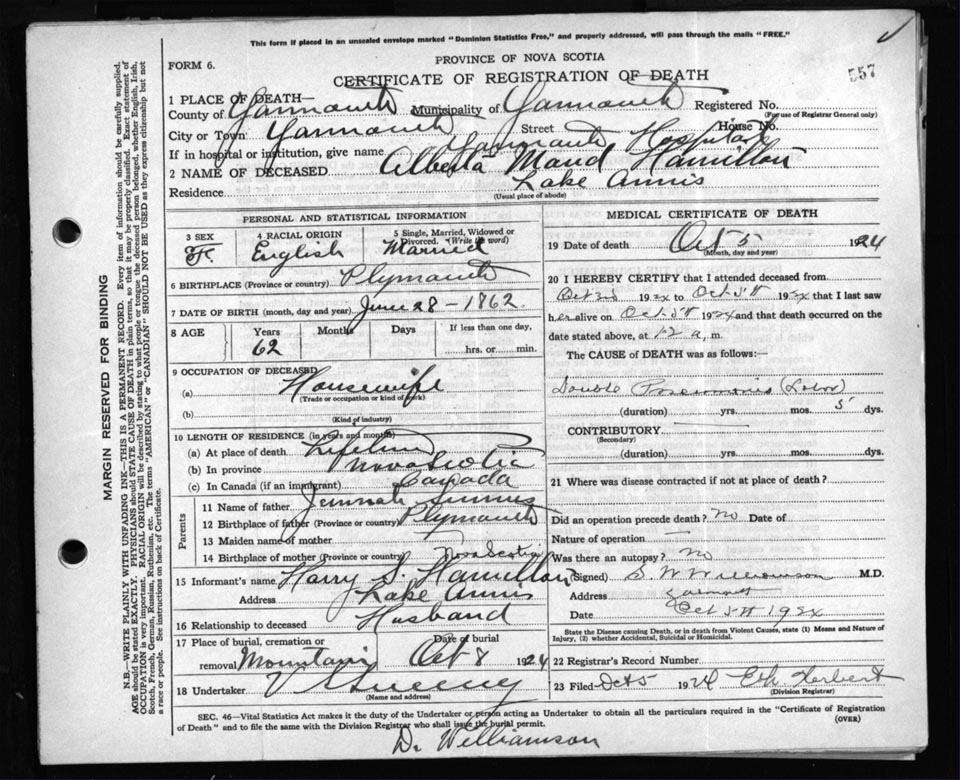 This form if placed in an unsealed envelope marked "Dominion Statistics Free," and properly addressed, will pass through the mails "FREE."
PROVINCE OF NOVA SCOTIA
FORM 6.
CERTIFICATE OF REGISTRATION OF DEATH
557
1 PLACE OF DEATH—
County of Yarmouth Municipality of Yarmouth Registered No.
(For use of Registrar General only)
City or Town Yarmouth Street House No.
If in hospital or institution, give name Yarmouth Hospital
2 NAME OF DECEASED Alberta Maud Hamilton
Residence Lake Annis
(Usual place of abode)
PERSONAL AND STATISTICAL INFORMATION
3 SEX 4 RACIAL ORIGIN 5 Single, Married, Widowed or Divorced. (Write the word)
F. English Married
6 BIRTHPLACE (Province or country) Plymouth
7 DATE OF BIRTH (month, day and year) June 28 - 1862
8 AGE Years Months Days If less than one day,
62 hrs. or min.
9 OCCUPATION OF DECEASED
(a) Housewife
(Trade or occupation or kind of work)
(b)
(Kind of industry)
10 LENGTH OF RESIDENCE (in years and months)
(a) At place of death Lifetime
(b) In province Nova Scotia
(c) In Canada (if an immigrant) Canada
Parents
11 Name of father
12 Birthplace of father (Province or country) Plymouth
13 Maiden name of mother —
14 Birthplace of mother (Province or country) Nova Scotia
15 Informant's name Harry S. Hamilton
Address Lake Annis
16 Relationship to deceased Husband
17 Place of burial, cremation or removal Date of burial
Oct 8 1924
18 Undertaker V Sweeny
(Name and address)
MEDICAL CERTIFICATE OF DEATH
19 Date of death Oct 5 1924
(Month, day and year)
20 I HEREBY CERTIFY that I attended deceased from
Oct 192x to Oct 5th 192x that I last saw
her alive on Oct 5th 192x and that death occurred on the
date stated above, at 12 a, m.
The CAUSE of DEATH was as follows:—
Double Pneumonia (Lobar)
(duration) yrs. mos. 5 dys.
CONTRIBUTORY
(Secondary)
(duration) yrs. mos. dys.
21 Where was disease contracted if not at place of death?
Did an operation precede death? no Date of
Nature of operation —
Was there an autopsy? no
(Signed) S. W Williamson M.D.
Address Yarmouth
Date Oct 5th 192x
State the Disease causing Death, or in death from Violent Causes, state (1) Means and Nature of Injury, (2) whether Accidental, Suicidal or Homicidal.
22 Registrar's Record Number
23 Filed Oct 5 1924 Herbert
(Division Registrar)
SEC. 46—Vital Statistics Act makes it the duty of the Undertaker or person acting as Undertaker to obtain all the particulars required in the "Certificate of Registration
of Death" and to file the same with the Division Registrar who shall issue the burial permit.
(OVER)
Dr Williamson
MARGIN RESERVED FOR BINDING
N.B.—WRITE PLAINLY WITH UNFADING INK—THIS IS A PERMANENT RECORD. Every item of information should be carefully supplied.
AGE should be stated EXACTLY. PHYSICIANS should STATE CAUSE OF DEATH in plain terms, so that it may be properly classified. Exact statement of
OCCUPATION is very important. RACIAL ORIGIN will be described by stating to what people or tongue the deceased person belonged, whether English, Irish,
Scotch, French, German, Russian, Ruthenian, etc. The terms "AMERICAN" or "CANADIAN" SHOULD NOT BE USED as they express citizenship but not
a race or people. See instructions on back of Certificate.